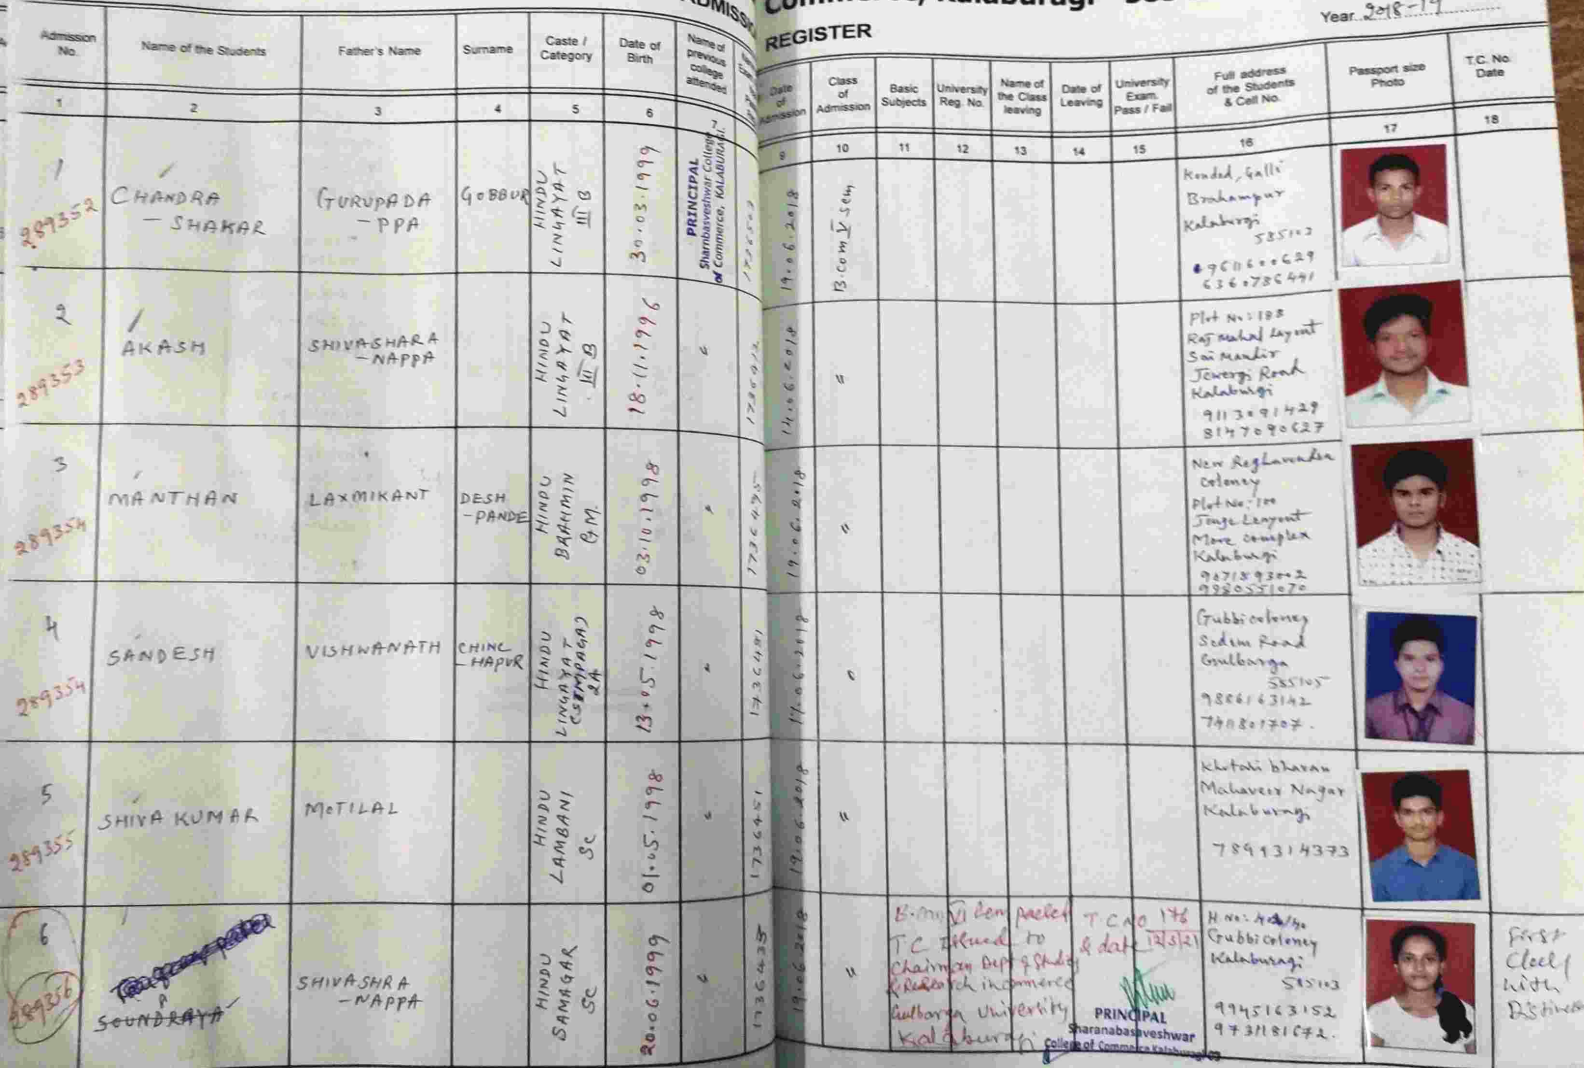 REGISTER
Year 2018-19
Admission No.
Name of the Students
Father's Name
Surname
Caste / Category
Date of Birth
Name of previous college attended
Date of Admission
Class of Admission
Basic Subjects
University Reg. No.
Name of the Class leaving
Date of Leaving
University Exam. Pass / Fail
Full address of the Students & Cell No.
Passport size Photo
T.C. No. Date
1 2 3 4 5 6 7 9 10 11 12 13 14 15 16 17 18
1
289352
CHANDRA
- SHAKAR
GURUPADA
- PPA
GOBBUR
HINDU
LINGAYAT
III B
30.03.1999
PRINCIPAL
Sharnbasveshwar College
of Commerce, KALABURAGI.
19.06.2018
B.com V sem
Galli
Brahampur
Kalaburgi
585103
9611600629
6360786441
2
289353
AKASH
SHIVASHARA
- NAPPA
HINDU
LINGAYAT
III B
18.11.1996
1736412
14.06.2018
"
Plot No: 188
Raj Mahal Layout
Sai Mandir
Jewergi Road
Kalaburgi
9113091429
8147090627
3
289354
MANTHAN
LAXMIKANT
DESH
- PANDE
HINDU
BRAHMIN
G.M.
03.10.1998
"
1736495
19.06.2018
"
New Raghavendra
Coloney
Plot No: 100
More Complex
Kalaburgi
9980551070
4
289354
SANDESH
VISHWANATH
CHINC
- HAPUR
HINDU
LINGAYAT
2A
13.05.1998
"
1736481
17.06.2018
Gubbi coloney
Sedam Road
Gulbarga
585105
9886163142
7411801707.
5
289355
SHIVA KUMAR
MOTILAL
HINDU
LAMBANI
SC
01.05.1998
"
1736451
19.06.2018
"
bhavan
Mahaveer Nagar
Kalaburagi
7899314373
6
289356
SOUNDRAYA
SHIVASHRA
- NAPPA
HINDU
SAMAGAR
SC
20.06.1999
"
1736435
19.06.2018
"
B.com VI Sem
T.C Issued to
Chairman Dept of Study
& Research in commerce
Gulbarga University
Kalaburagi
T C NO 176
& date 12/3/21
PRINCIPAL
Sharanabasaveshwar
College of Commerce Kalaburagi-03
H.No:
Gubbi coloney
Kalaburagi
585103
9945163152
9731181672.
First
Class
with